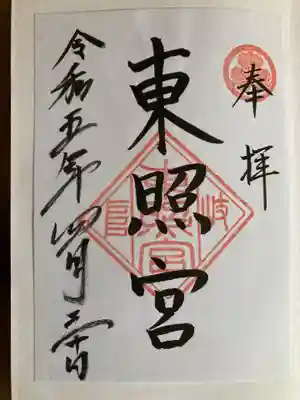 奉拝
東照宮
令和五年四月